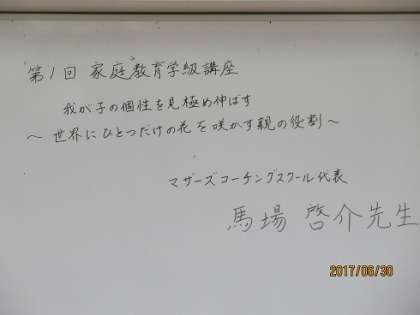 第1回 家庭教育学級講座
我が子の個性を見極め伸ばす
～世界にひとつだけの花を咲かす親の役割～
マザーズコーチングスクール代表
馬場 啓介先生
2017/06/30